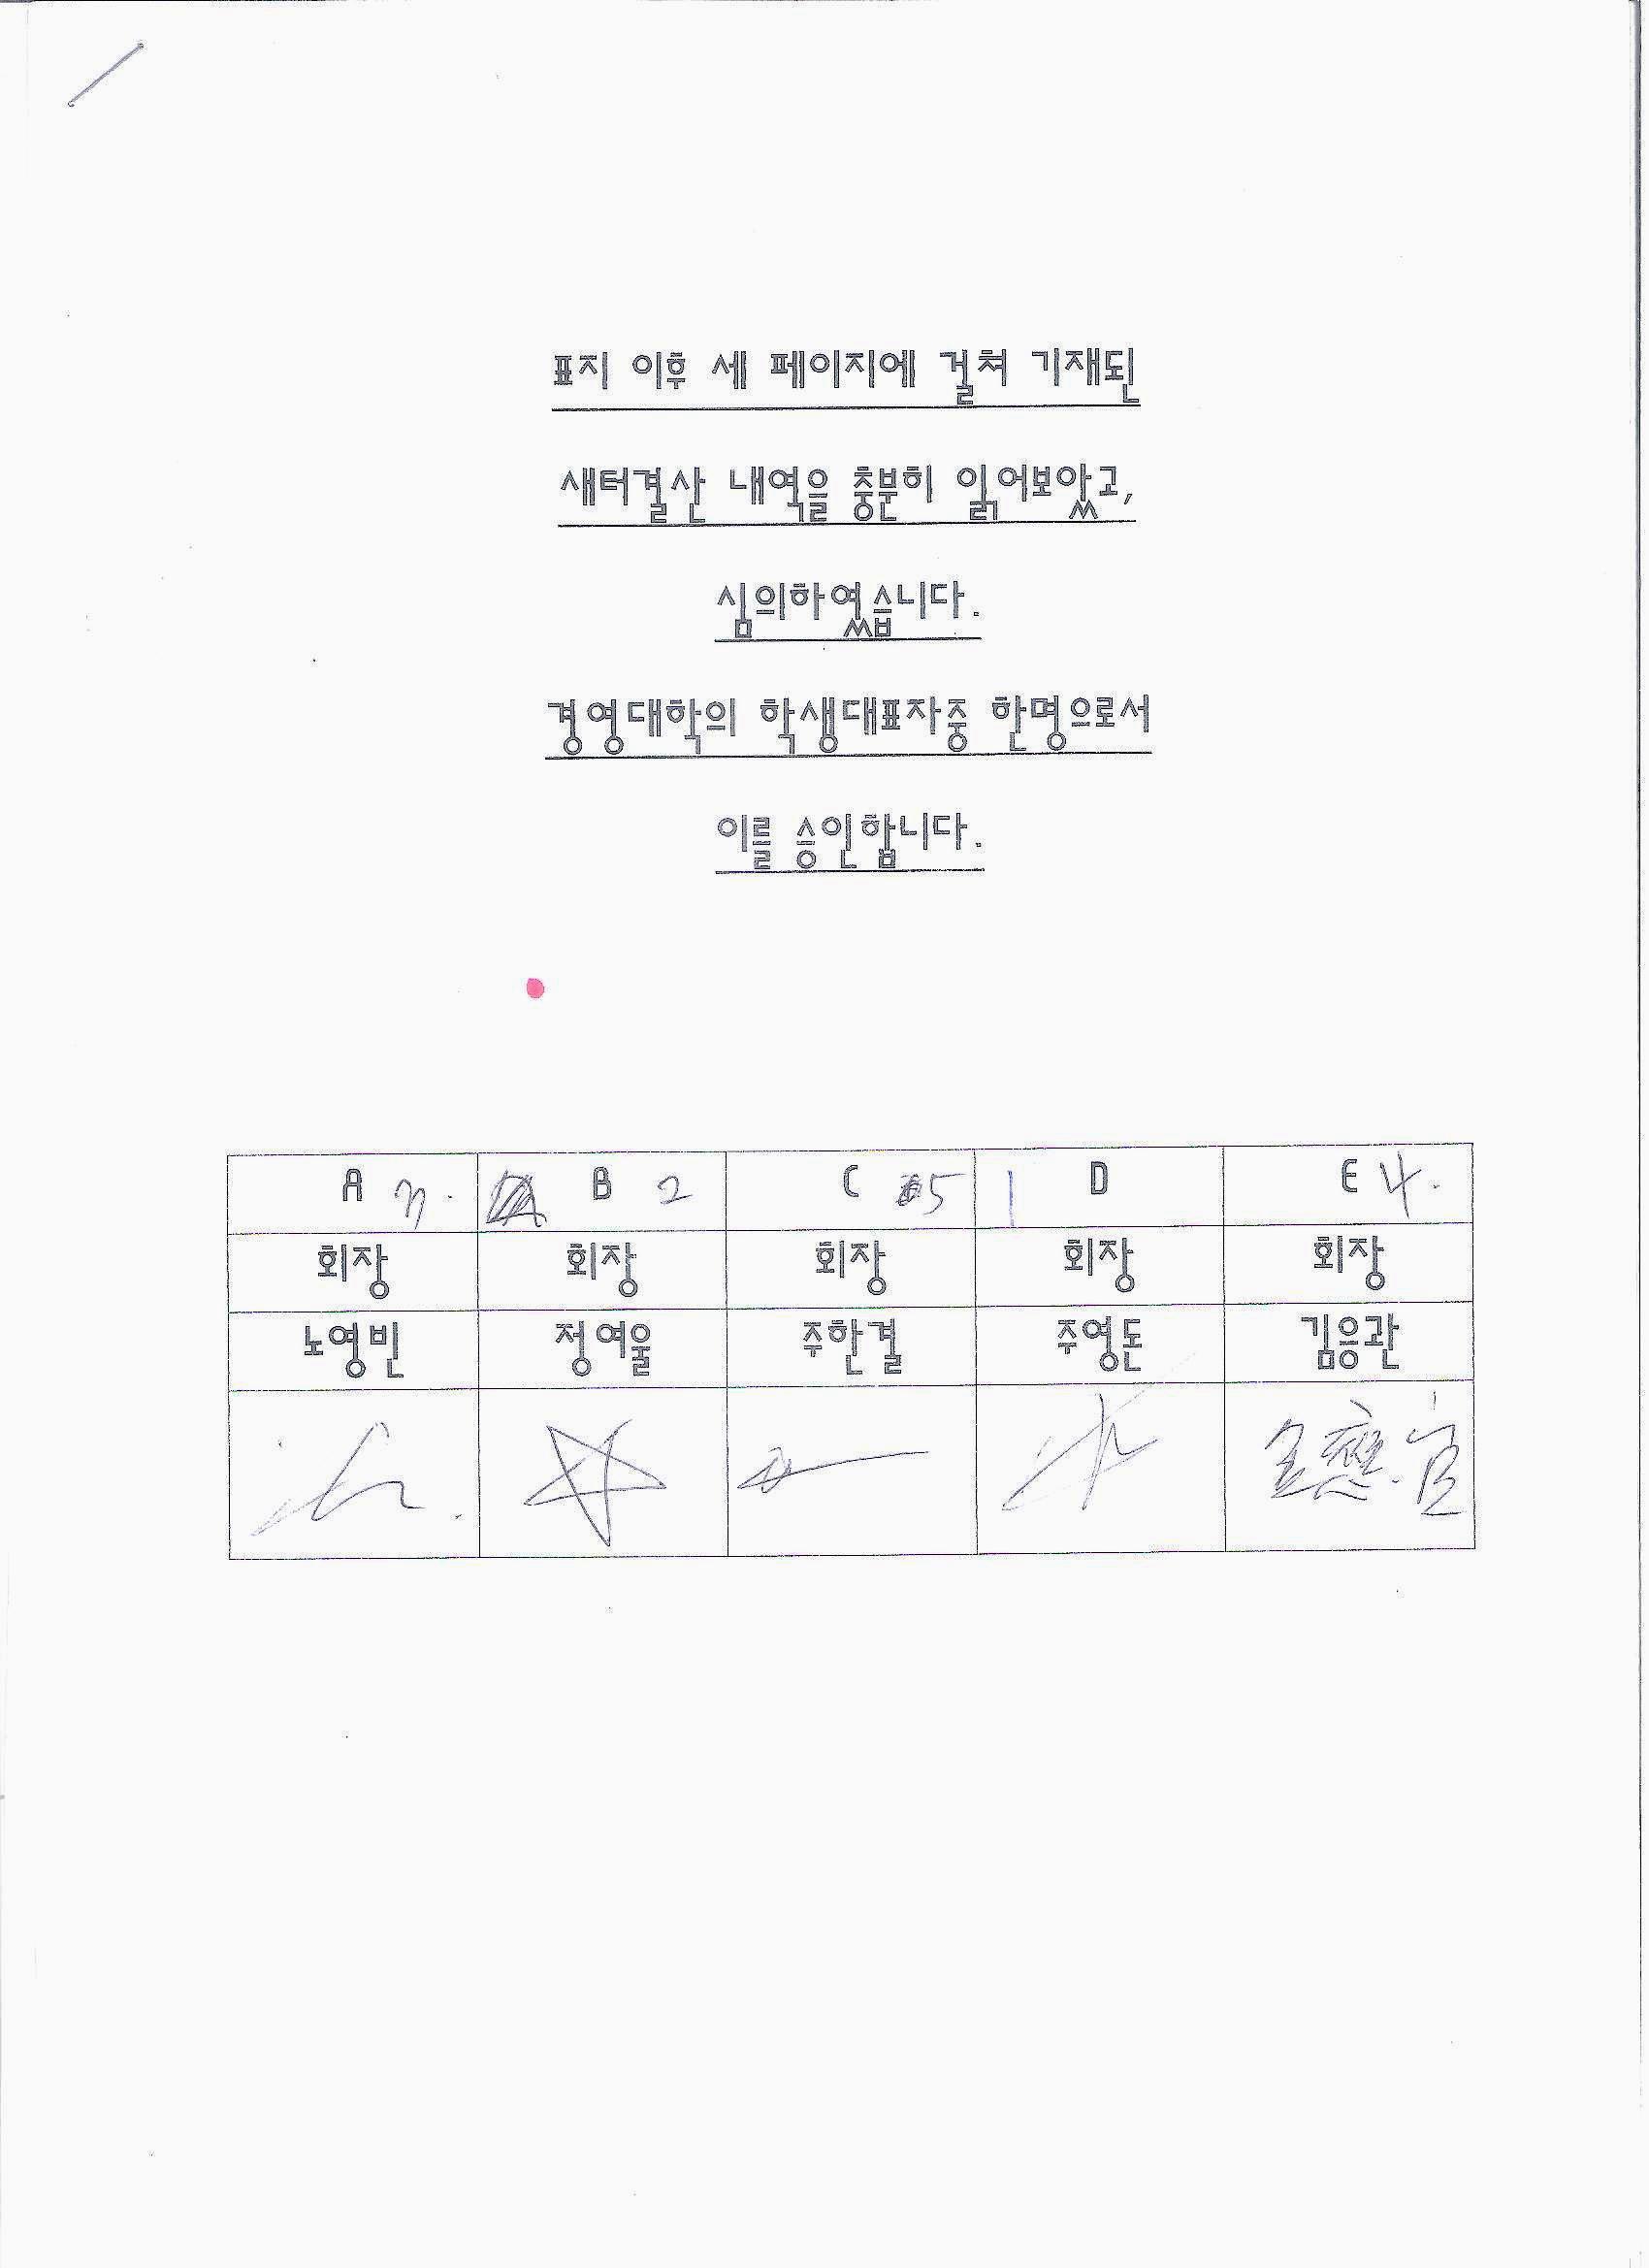 표지 이후 세 페이지에 걸쳐 기재된
새터결산 내역을 충분히 읽어보았고,
심의하였습니다.
경영대학의 학생대표자중 한명으로서
이를 승인합니다.
A B 2 C 5 1 D E 4.
회장 회장 회장 회장 회장
노영빈 정여울 주한결 주영돈 김응관